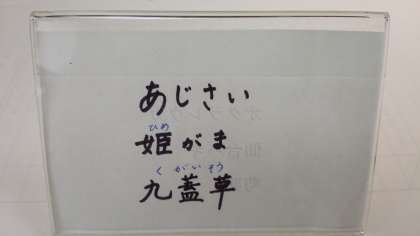 あじさい
ひめ
姫がま
くがいそう
九蓋草